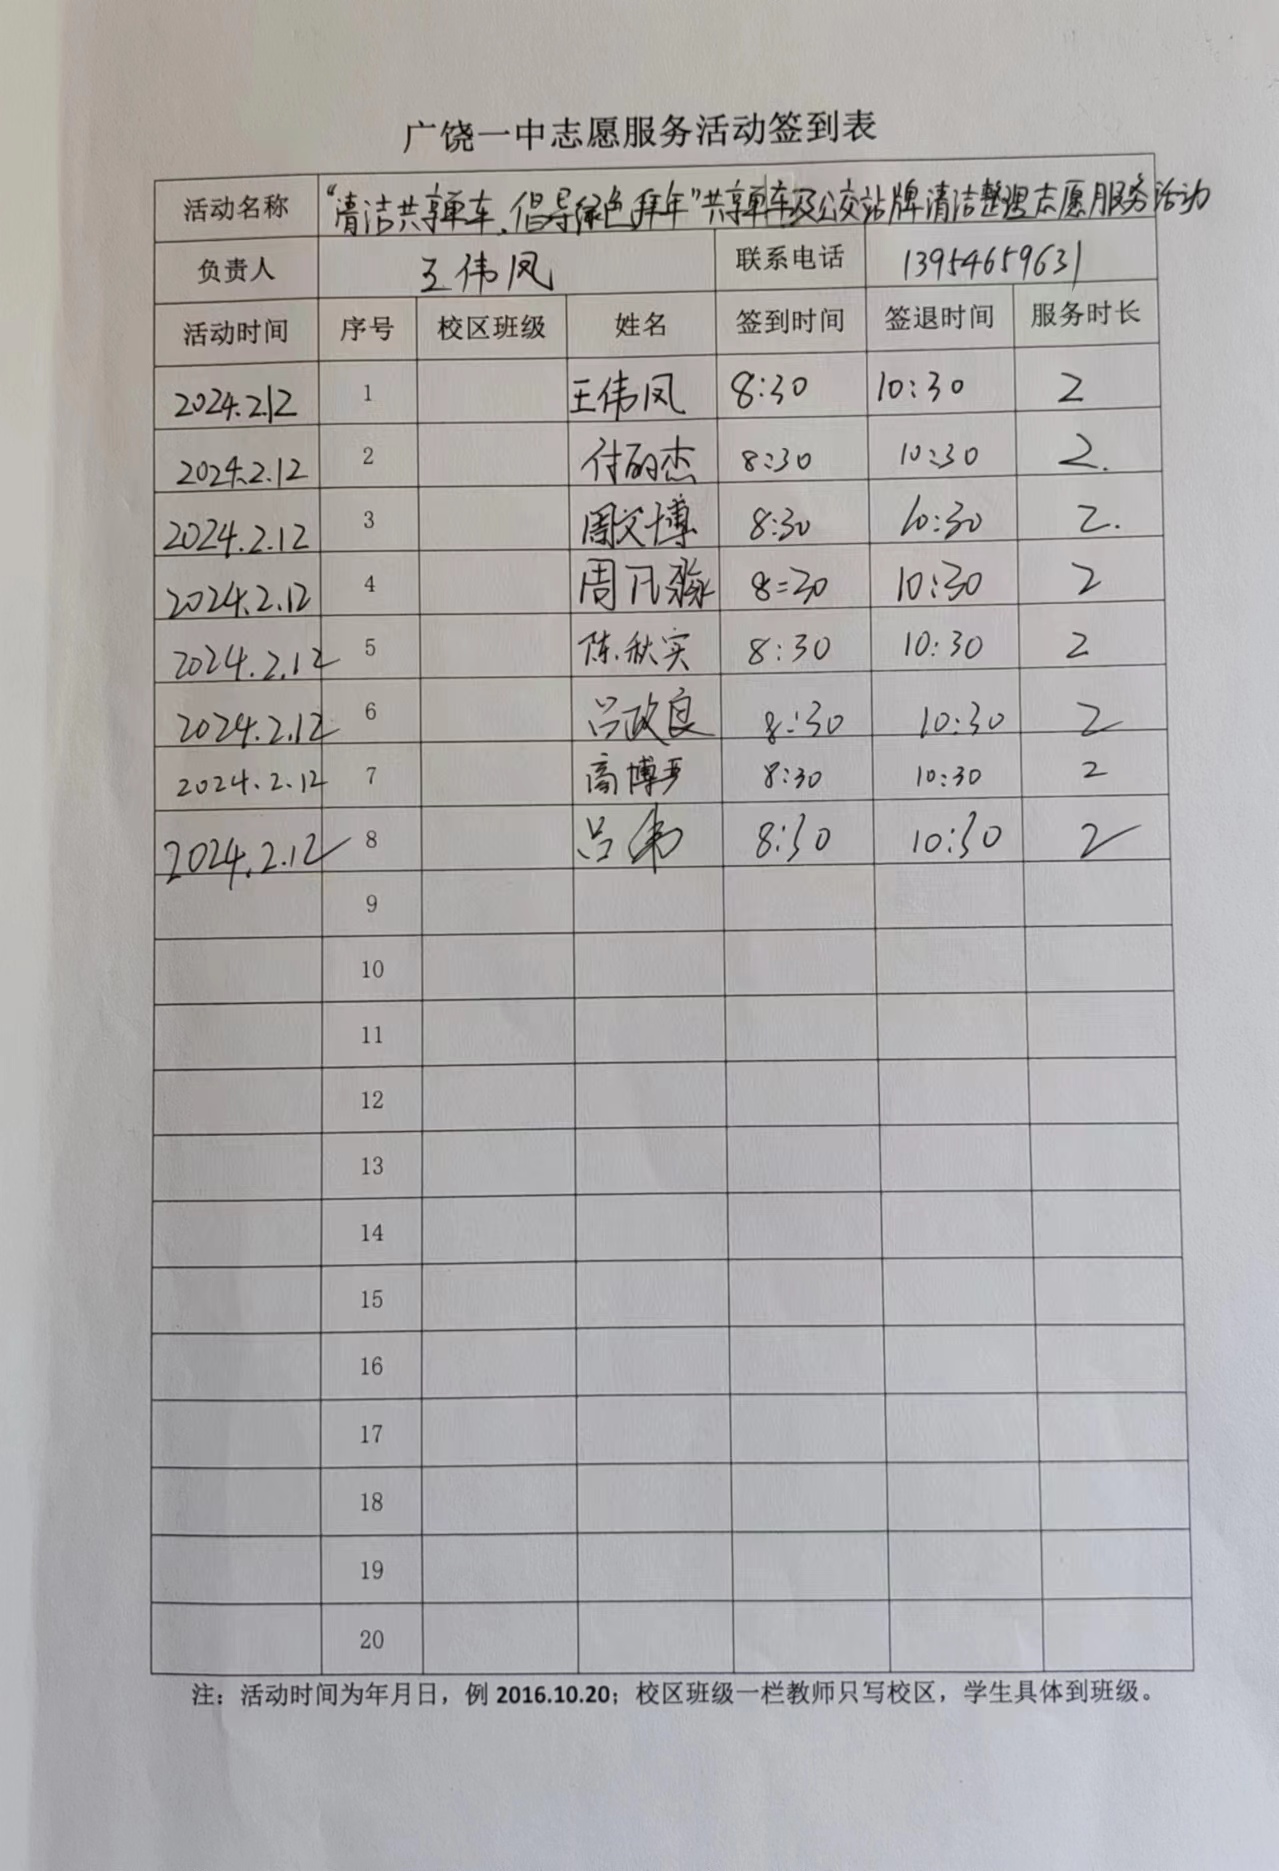 广饶一中志愿服务活动签到表
活动名称 “清洁共享单车、倡导绿色拜年”共享单车及公交站牌清洁整理志愿服务活动
负责人 王伟凤 联系电话 13954659631
活动时间 序号 校区班级 姓名 签到时间 签退时间 服务时长
2024.2.12 1 王伟凤 8:30 10:30 2
2024.2.12 2 付丽杰 8:30 10:30 2.
2024.2.12 3 周文博 8:30 10:30 2.
2024.2.12 4 周凡淼 8:30 10:30 2
2024.2.12 5 陈秋实 8:30 10:30 2
2024.2.12 6 吕政良 8:30 10:30 2
2024.2.12 7 高博 8:30 10:30 2
2024.2.12 8 吕伟 8:30 10:30 2
9
10
11
12
13
14
15
16
17
18
19
20
注：活动时间为年月日，例 2016.10.20；校区班级一栏教师只写校区，学生具体到班级。